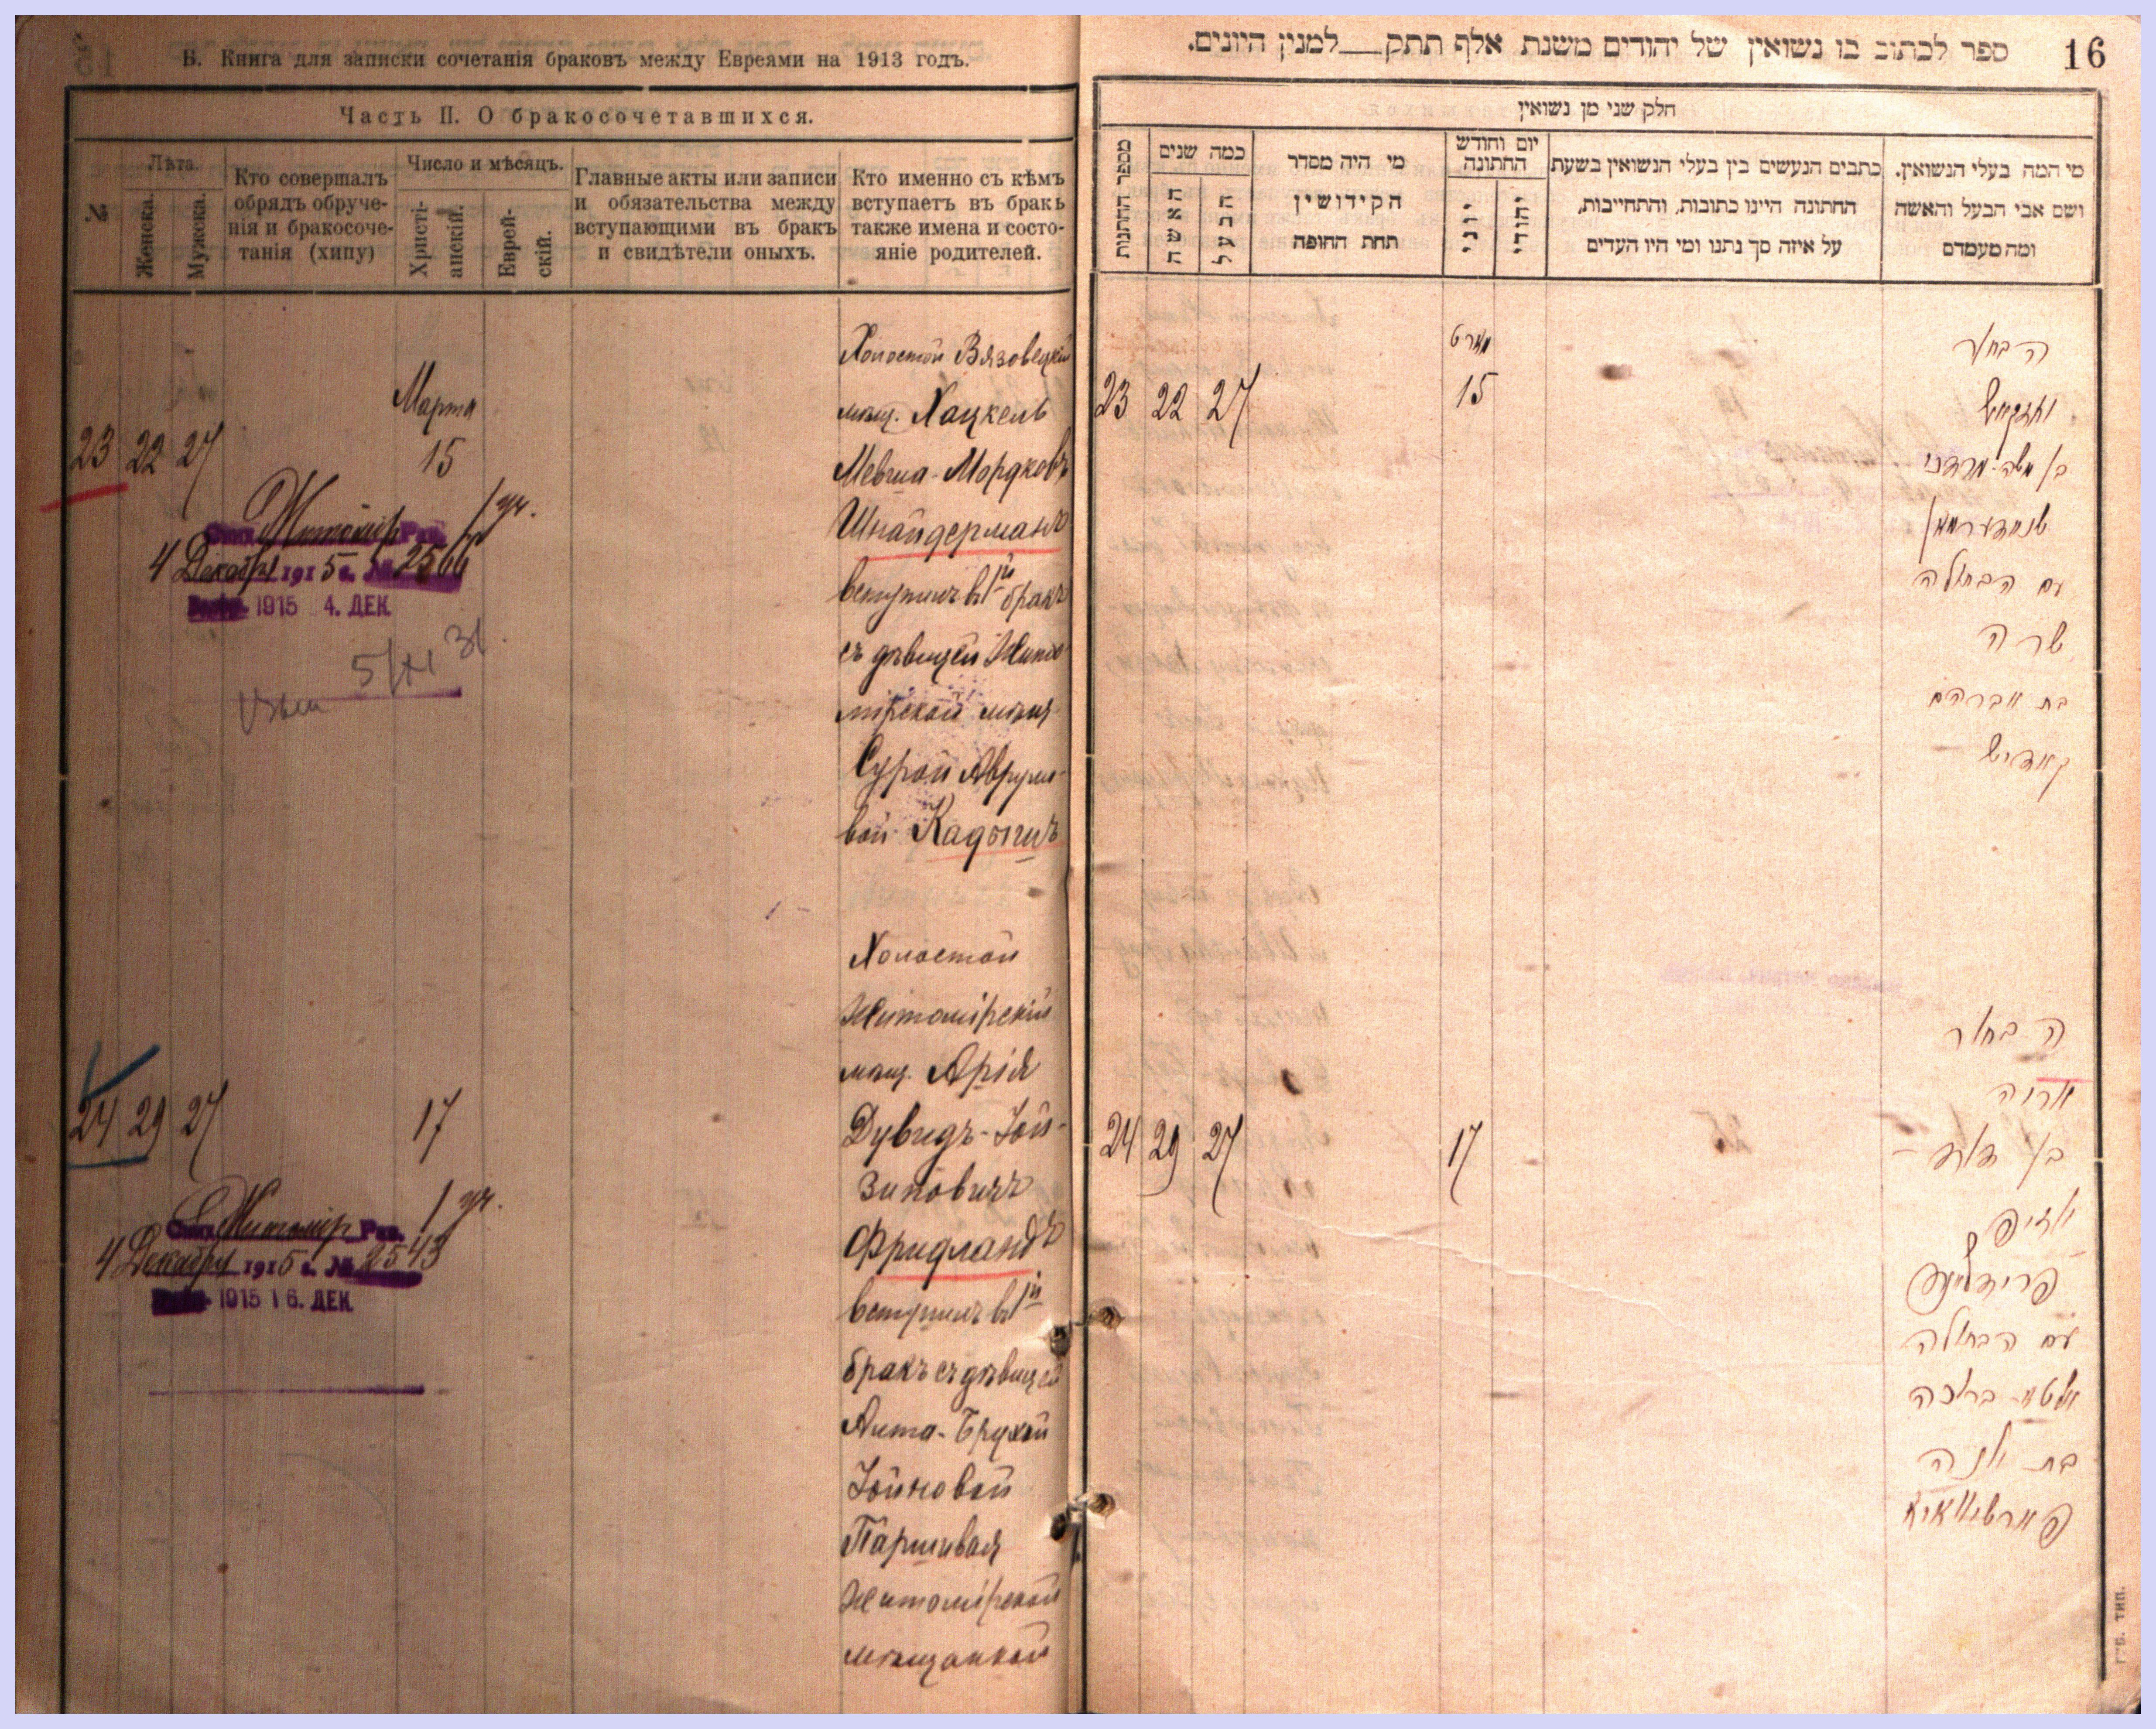 Б. Книга для записки сочетанія браковъ между Евреями на 1913 годъ.
Часть II. О бракосочетавшихся.
№
Лѣта.
Женска.
Мужеска.
Кто совершалъ
обрядъ обруче-
нія и бракосоче-
танія (хипу)
Число и мѣсяцъ.
Христі-
анскій.
Еврей-
скій.
Главные акты или записи
и обязательства между
вступающими въ бракъ
и свидѣтели оныхъ.
Кто именно съ кѣмъ
вступаетъ въ бракъ
также имена и состо-
яніе родителей.
23 22 27
Марта
15
Холостой Вязовецкій
мѣщ. Хацкель
Мевша-Мордковъ
Шнайдерманъ
вступилъ въ 1й бракъ
съ дѣвицей Жито-
мірской мѣщ.
Сурой Аврумо-
вой Кадышъ
Житомір Рав. 1 уч.
4 Декабря 1915 г. № 2566
1915 4. ДЕК.
24 29 27
17
Холостой
Житомірскій
мѣщ. Арія
Дувидъ-Іой-
зиповичъ
Фридландъ
вступилъ въ 1й
бракъ съ дѣвицей
Алта-Брухой
Іойновой
Паршивая
Житомірской
мѣщанкой
Житомір Рав. 1 уч.
4 Декабря 1915 г. № 2543
1915 16. ДЕК.
16
ספר לכתוב בו נשואין של יהודים משנת אלף תתק למנין היונים.
חלק שני מן נשואין
מספר החתנות
כמה שנים
האשה
הבעל
מי היה מסדר
הקידושין
תחת החופה
יום וחודש
החתונה
יוני
יהודי
כתבים הנעשים בין בעלי הנשואין בשעת
החתונה היינו כתובות, והתחייבות,
על איזה סך נתנו ומי היו העדים
מי המה בעלי הנשואין.
ושם אבי הבעל והאשה
ומה מעמדם
23 22 27
מארט
15
הבחור
חאצקעל
בן משה מרדכי
שניידערמאן
עם הבתולה
שרה
בת אברהם
קאדיש
24 29 27
17
הבחור
אריה
בן דוד
יוזיפ
פרידלאנד
עם הבתולה
אלטא ברוכה
בת יונה
פארשיוואיא